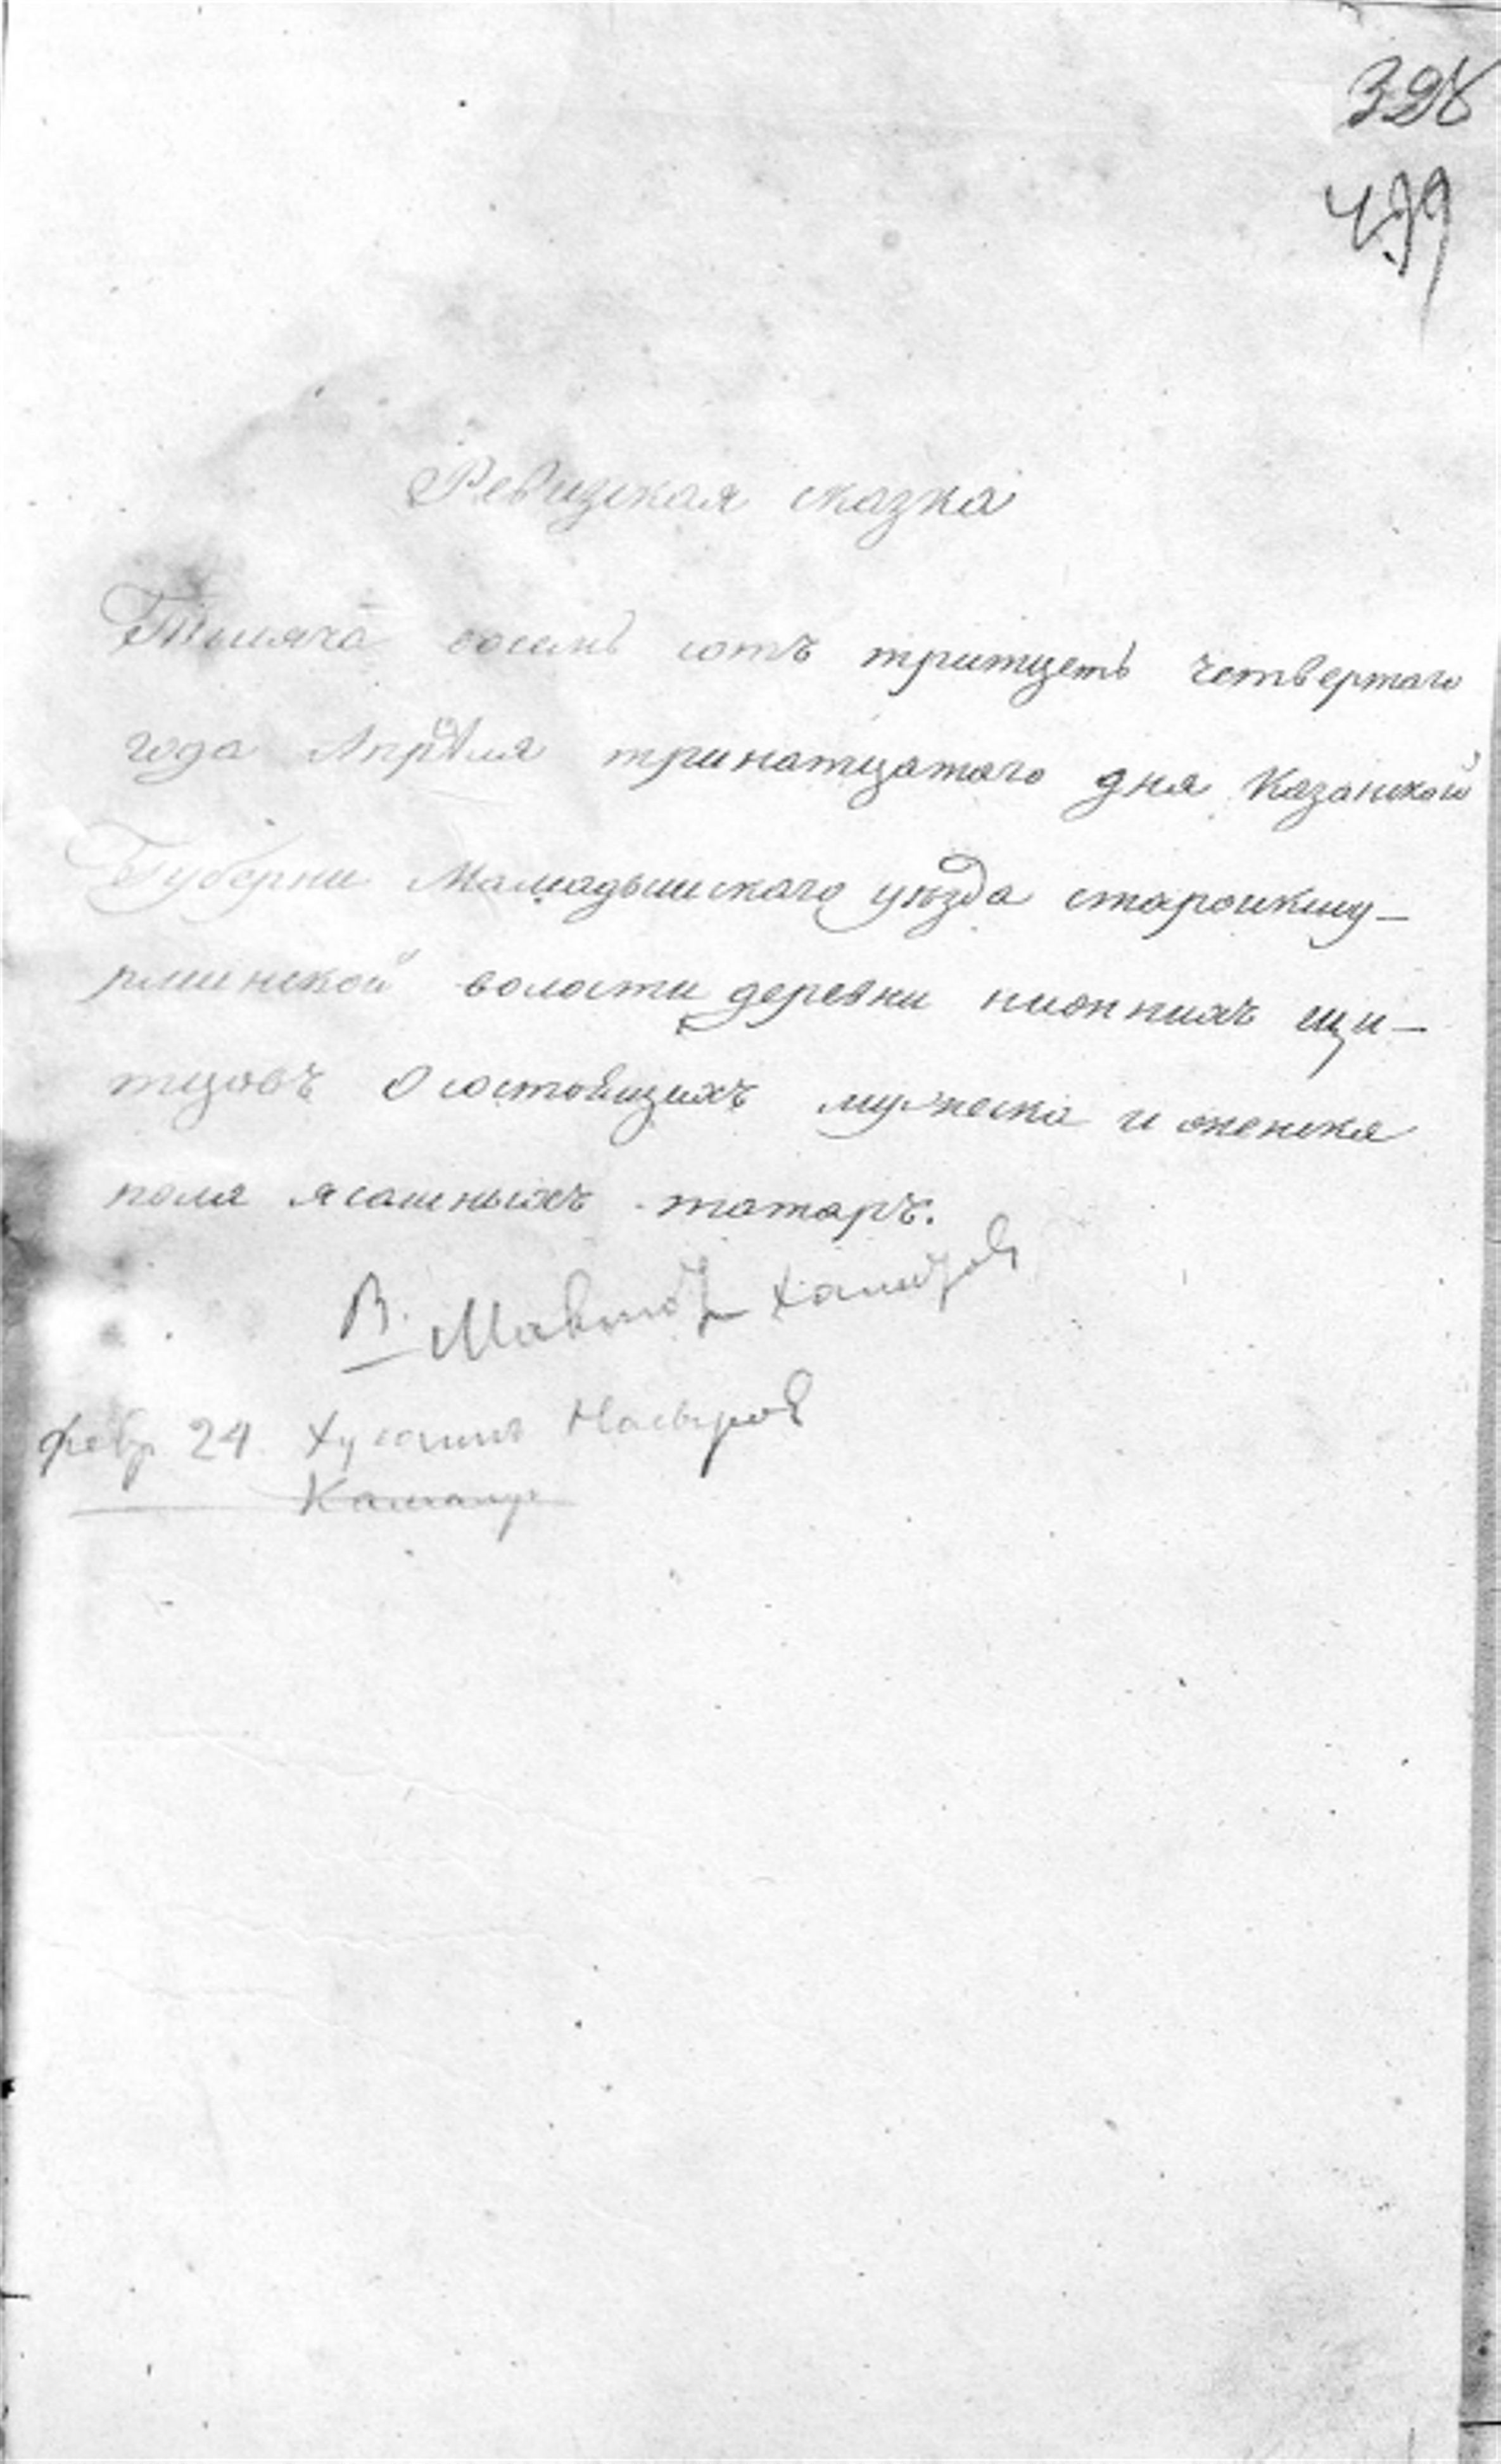 328
499
Ревизская сказка
Тысяча восемь сотъ тритцеть четвертаго
года Апреля тринатцатаго дня Казанской
Губерни Мамадышскаго уезда староикшу-
рминской волости деревни нижнихъ щи-
тцовъ о состоящихъ мужеска и женска
пола ясашныхъ татаръ.
В.
февр 24 Хусаинъ Насыров